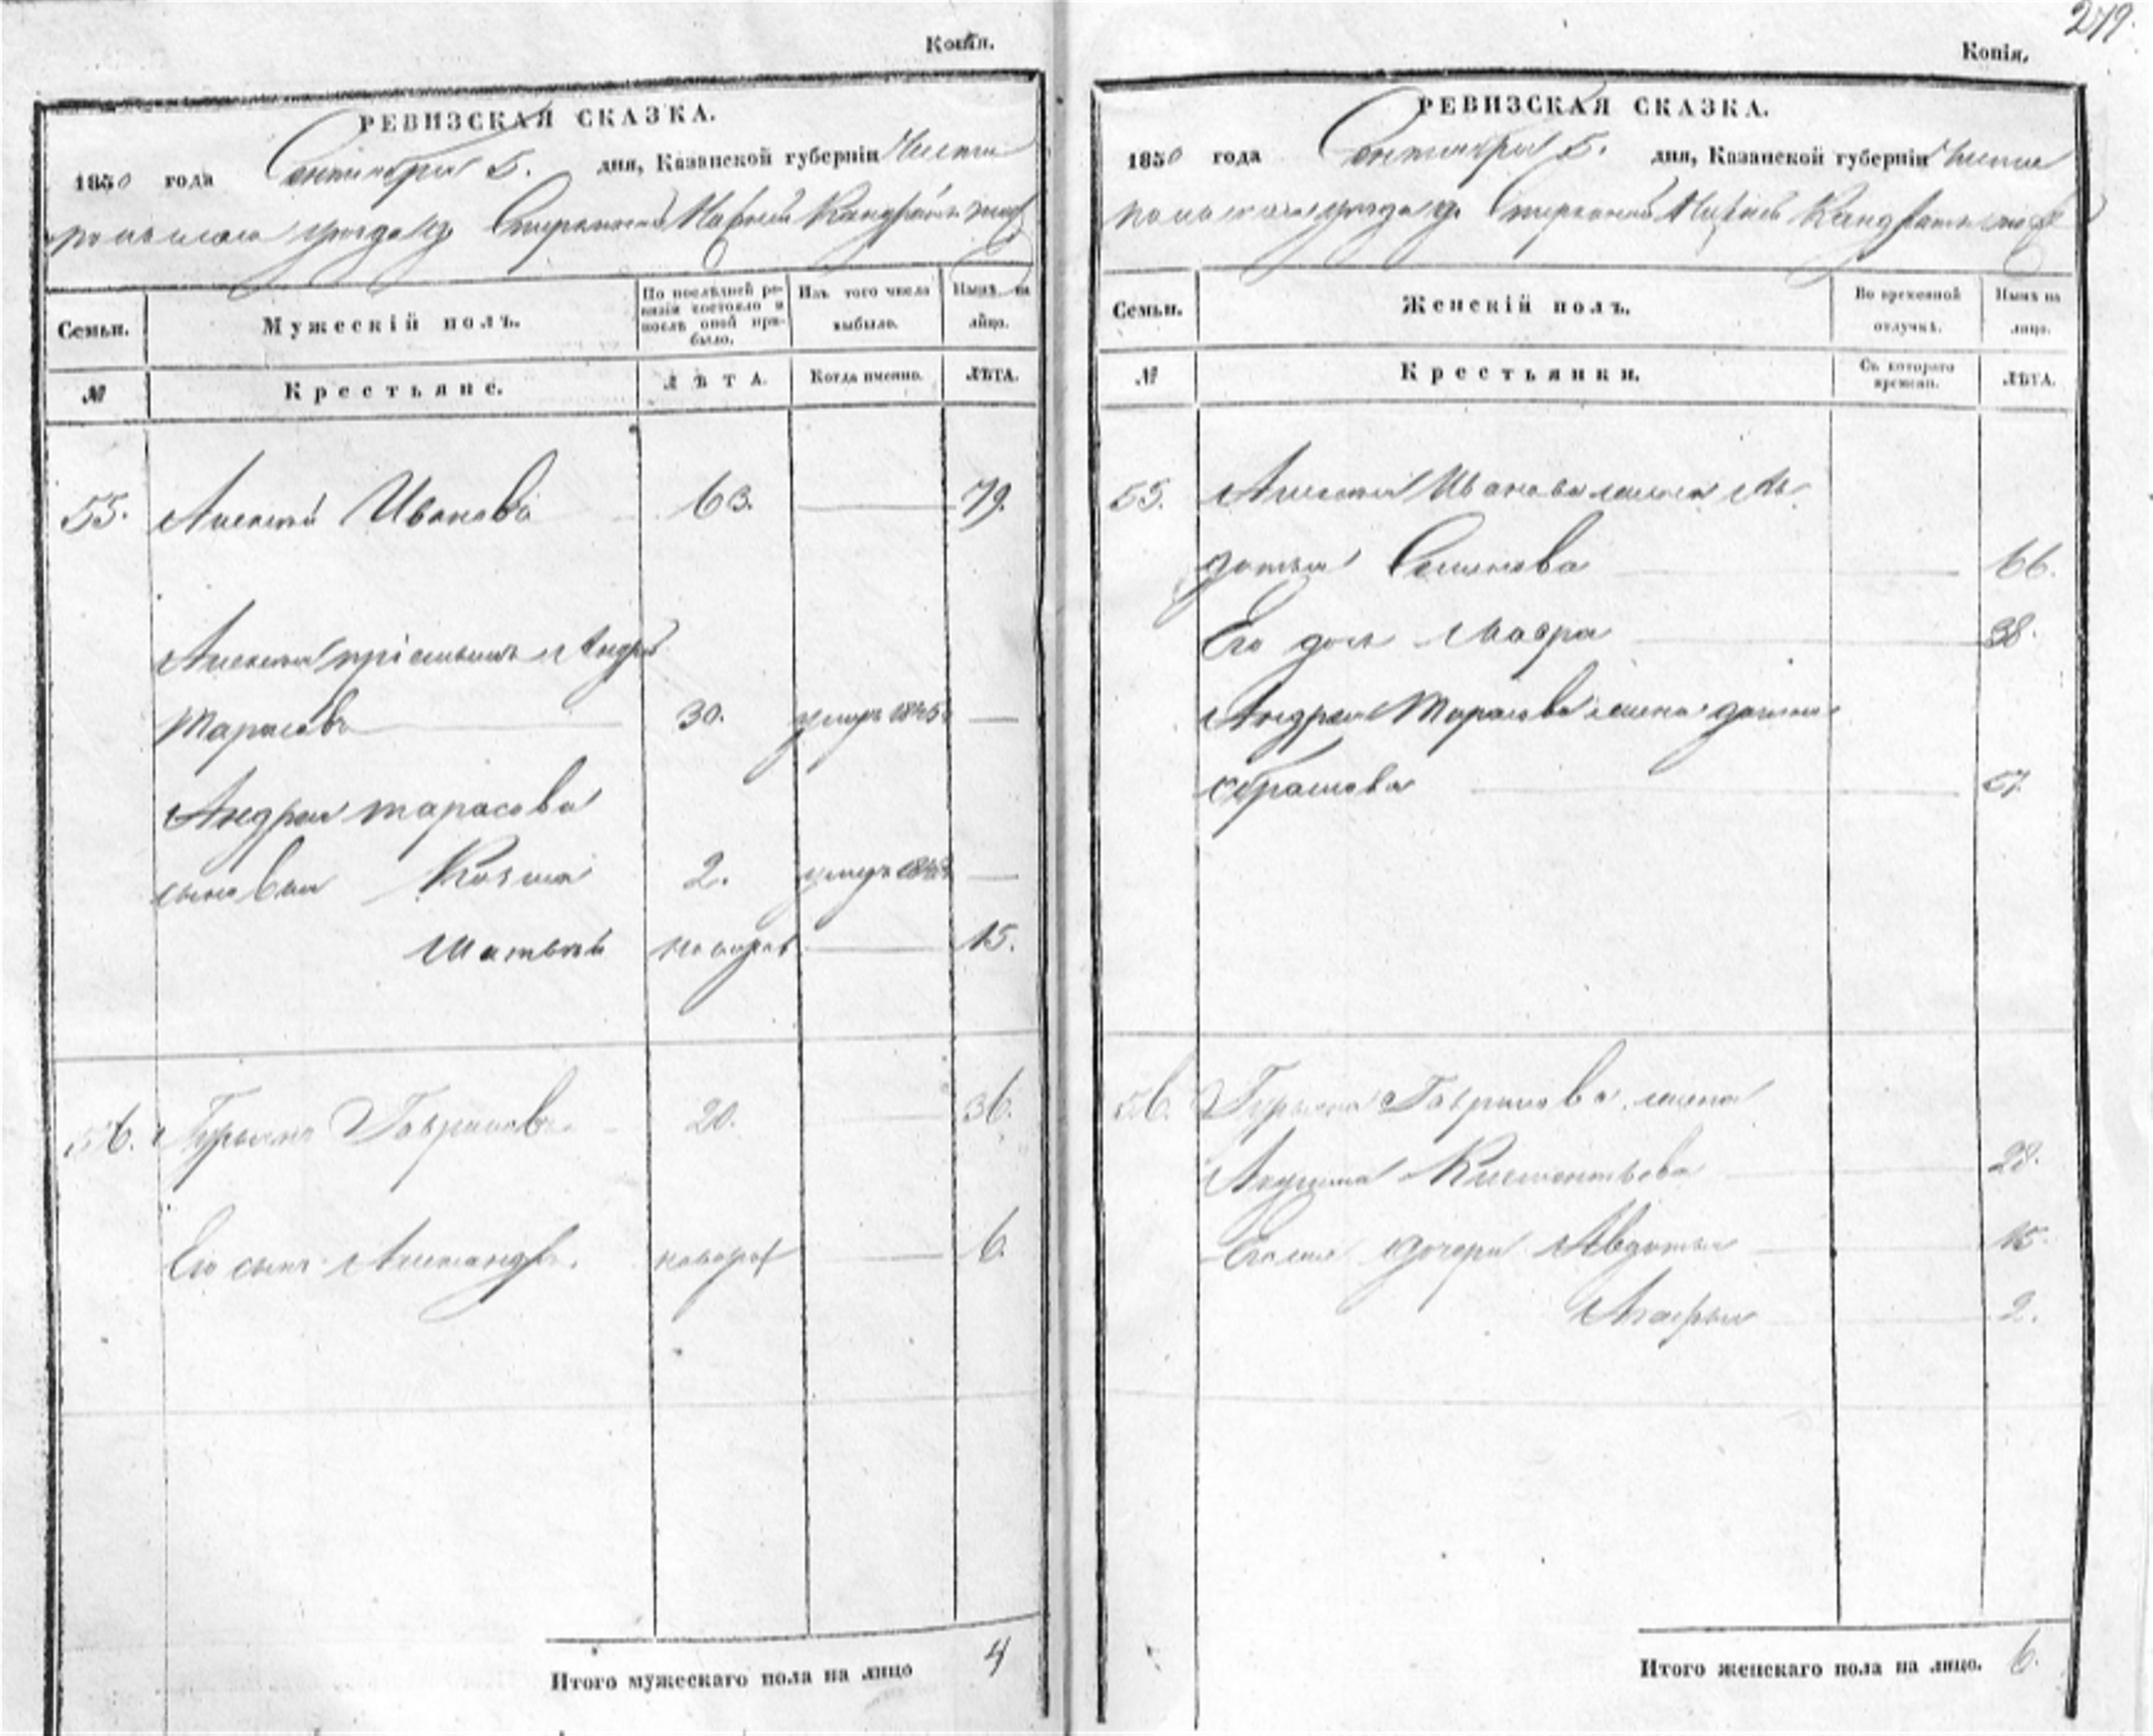 Копія.
РЕВИЗСКАЯ СКАЗКА.
1850 года Сентября 5. дня, Казанской губерніи Чисто
польскаго уезда
Семьи. Мужескій полъ. По послѣдней ревизіи состояло и послѣ оной прибыло. Изъ того числа выбыло. Нынѣ на лицо.
№ Крестьяне. ЛѢТА. Когда именно. ЛѢТА.
55. Алексей Ивановъ 63. 79.
Алексея пріемышъ Андрей
Тарасовъ 30. умеръ
Андрея тарасова
сыновья Козма 2. умеръ
Матвей новорож 15.
56. Гаврилов 20. 36.
Его сынъ Александръ. новорож 6.
Итого мужескаго пола на лицо 4
279.
Копія.
РЕВИЗСКАЯ СКАЗКА.
1850 года Сентября 5. дня, Казанской губерніи Чисто
польскаго уезда
Семьи. Женскій полъ. Во временной отлучкѣ. Нынѣ на лицо.
№ Крестьянки. Съ котораго времени. ЛѢТА.
55. Алексея Иванова жена Ав
дотья Семенова 66.
Его дочь Мавра 38.
Андрея Тарасова жена
57.
56. Гаврилова жена
Акулина Клементьева 28.
дочери Авдотья 15.
2.
Итого женскаго пола на лицо. 6.